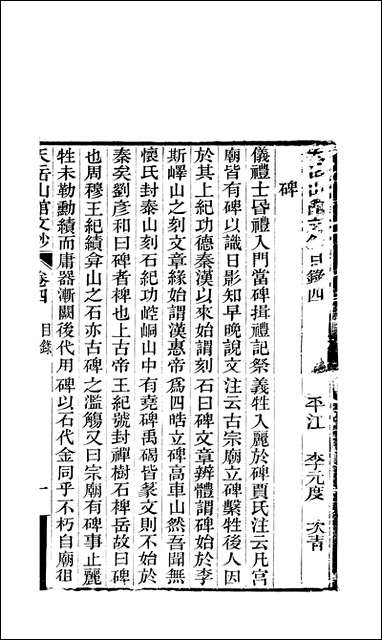 天岳山館文鈔目錄四
平江 李元度 次青
碑
儀禮士昏禮入門當碑揖禮記祭義牲入麗於碑賈氏注云凡宮
廟皆有碑以識日影知早晚說文注云古宗廟立碑繫牲後人因
於其上紀功德秦漢以來始謂刻石曰碑文章辨體謂碑始於李
斯嶧山之刻文章緣始謂漢惠帝為四皓立碑高車山然吾聞無
懷氏封泰山刻石紀功崆峒山中有堯碑禹碣皆篆文則不始於
秦矣劉彥和曰碑者裨也上古帝王紀號封禪樹石裨岳故曰碑
也周穆王紀績弇山之石亦古碑之濫觴又曰宗廟有碑事止麗
牲未勒勳績而庸器漸闕後代用碑以石代金同乎不朽自廟徂
天岳山館文鈔 卷四 目錄 一